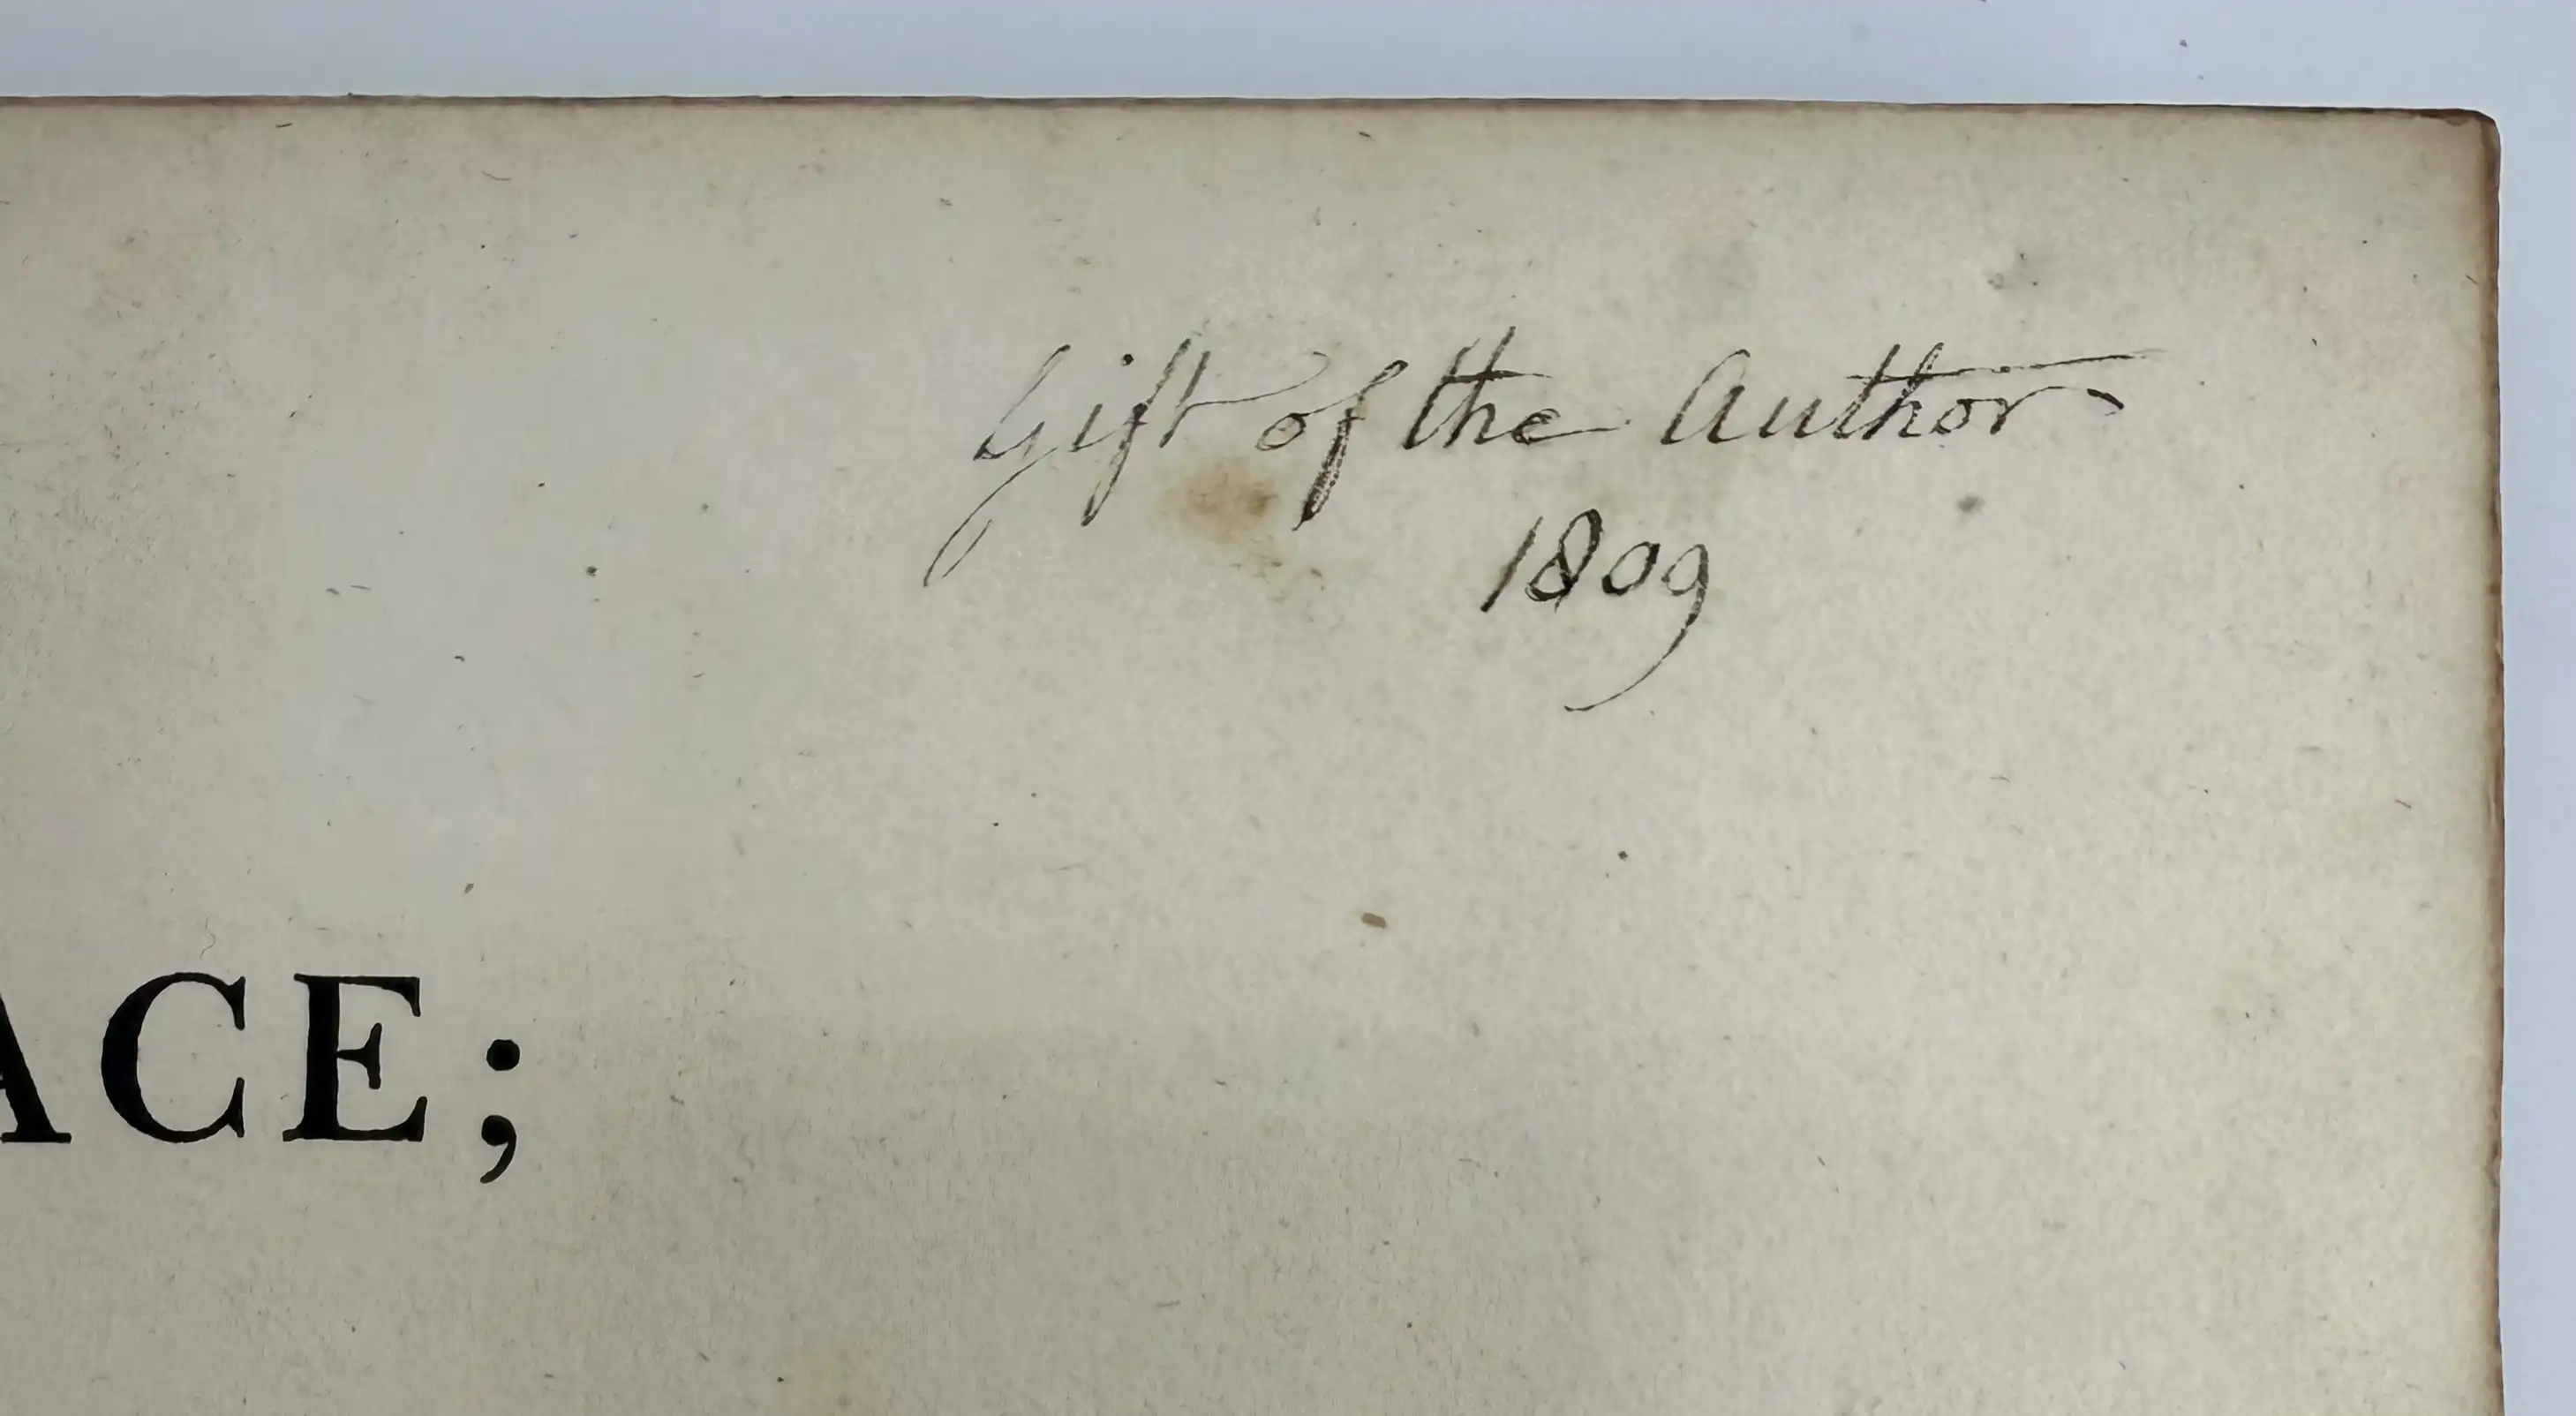 Gift of the Author
1809
ACE;